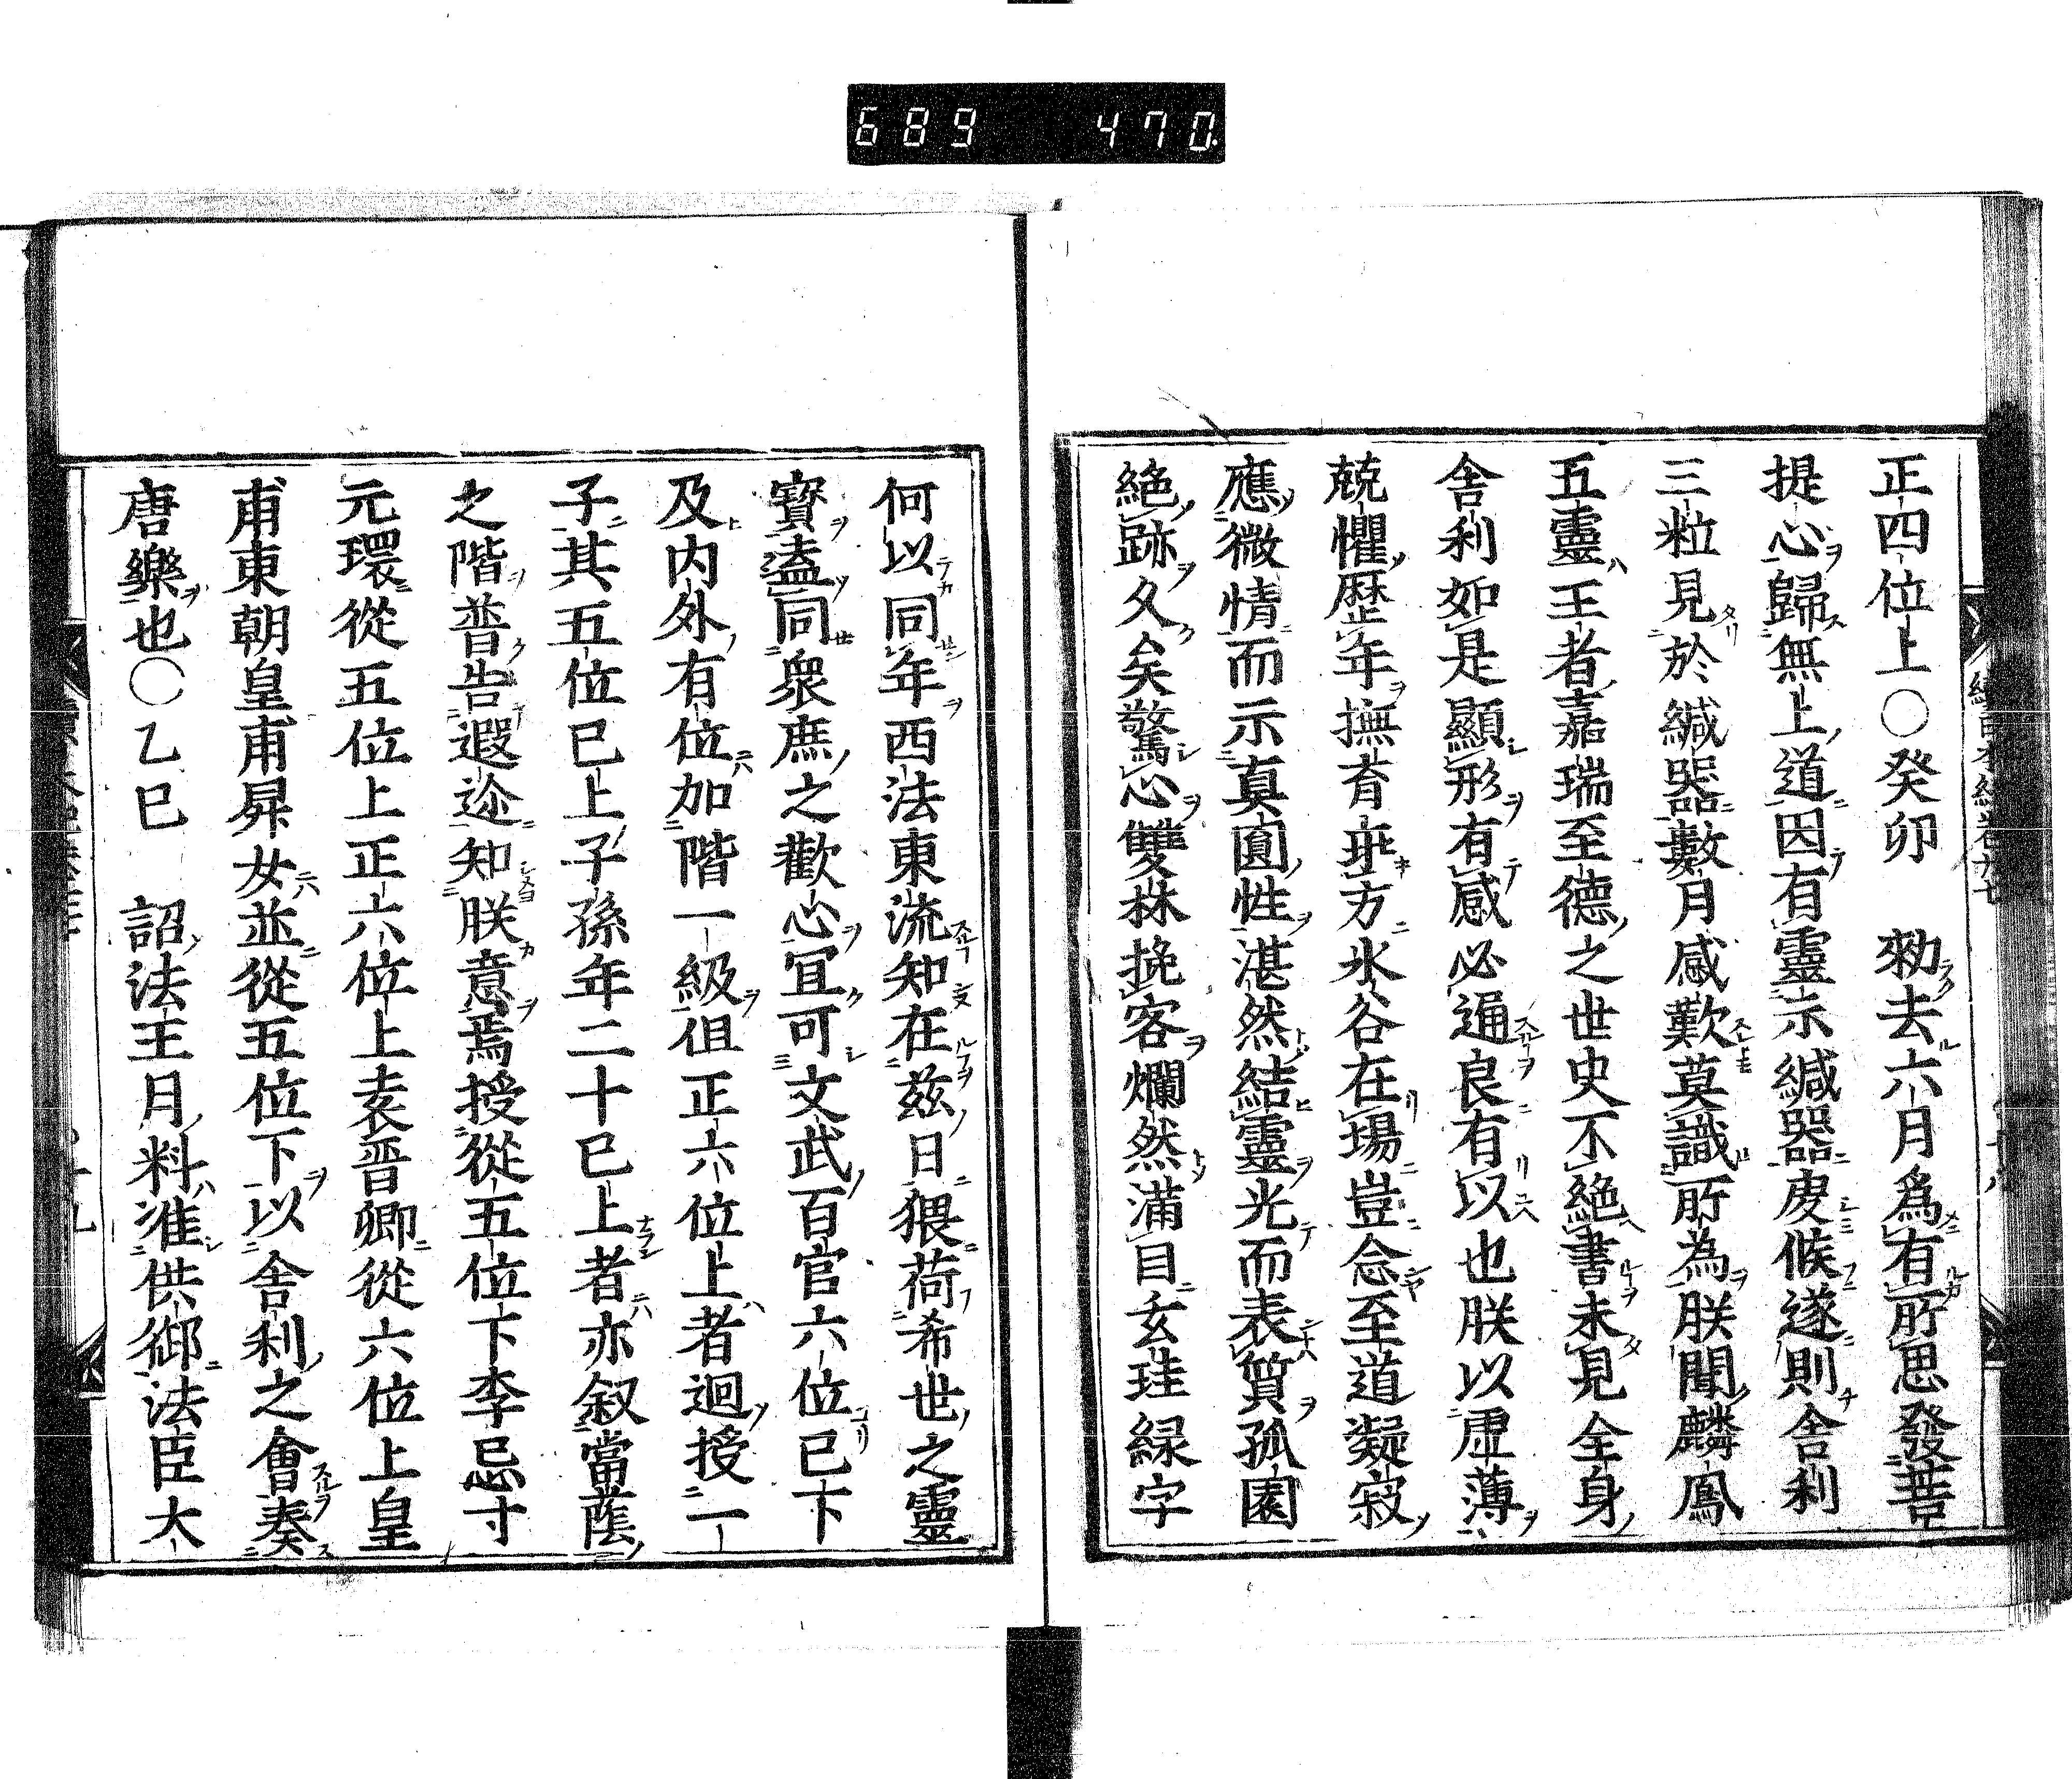 689 470
正四位上○癸卯 勅去六月爲有所思發菩
提心歸無上道因有靈示緘器虔候遂則舍利
三粒見於緘器數月感歎莫識所為朕聞麟鳳
五靈王者嘉瑞至德之世史不絶書未見全身
舍利如是顯形有感必通良有以也朕以虚薄
兢懼歴年撫育乖方氷谷在場豈念至道凝寂
應微情而示真圓性湛然結靈光而表質孤園
絶跡久矣驚心雙株挽客爛然滿目玄珪緑字
何以同年西法東流知在兹日猥荷希世之靈
寳盍同衆庶之歡心冝可文武百官六位已下
及内外有位加階一級但正六位上者迴授一
子其五位已上子孫年二十已上者亦叙當蔭
之階普告遐迩知朕意焉授從五位下李忌寸
元環從五位上正六位上袁晋卿從六位上皇
甫東朝皇甫昇女並從五位下以舍利之會奏
唐樂也○乙巳 詔法王月料准供御法臣大